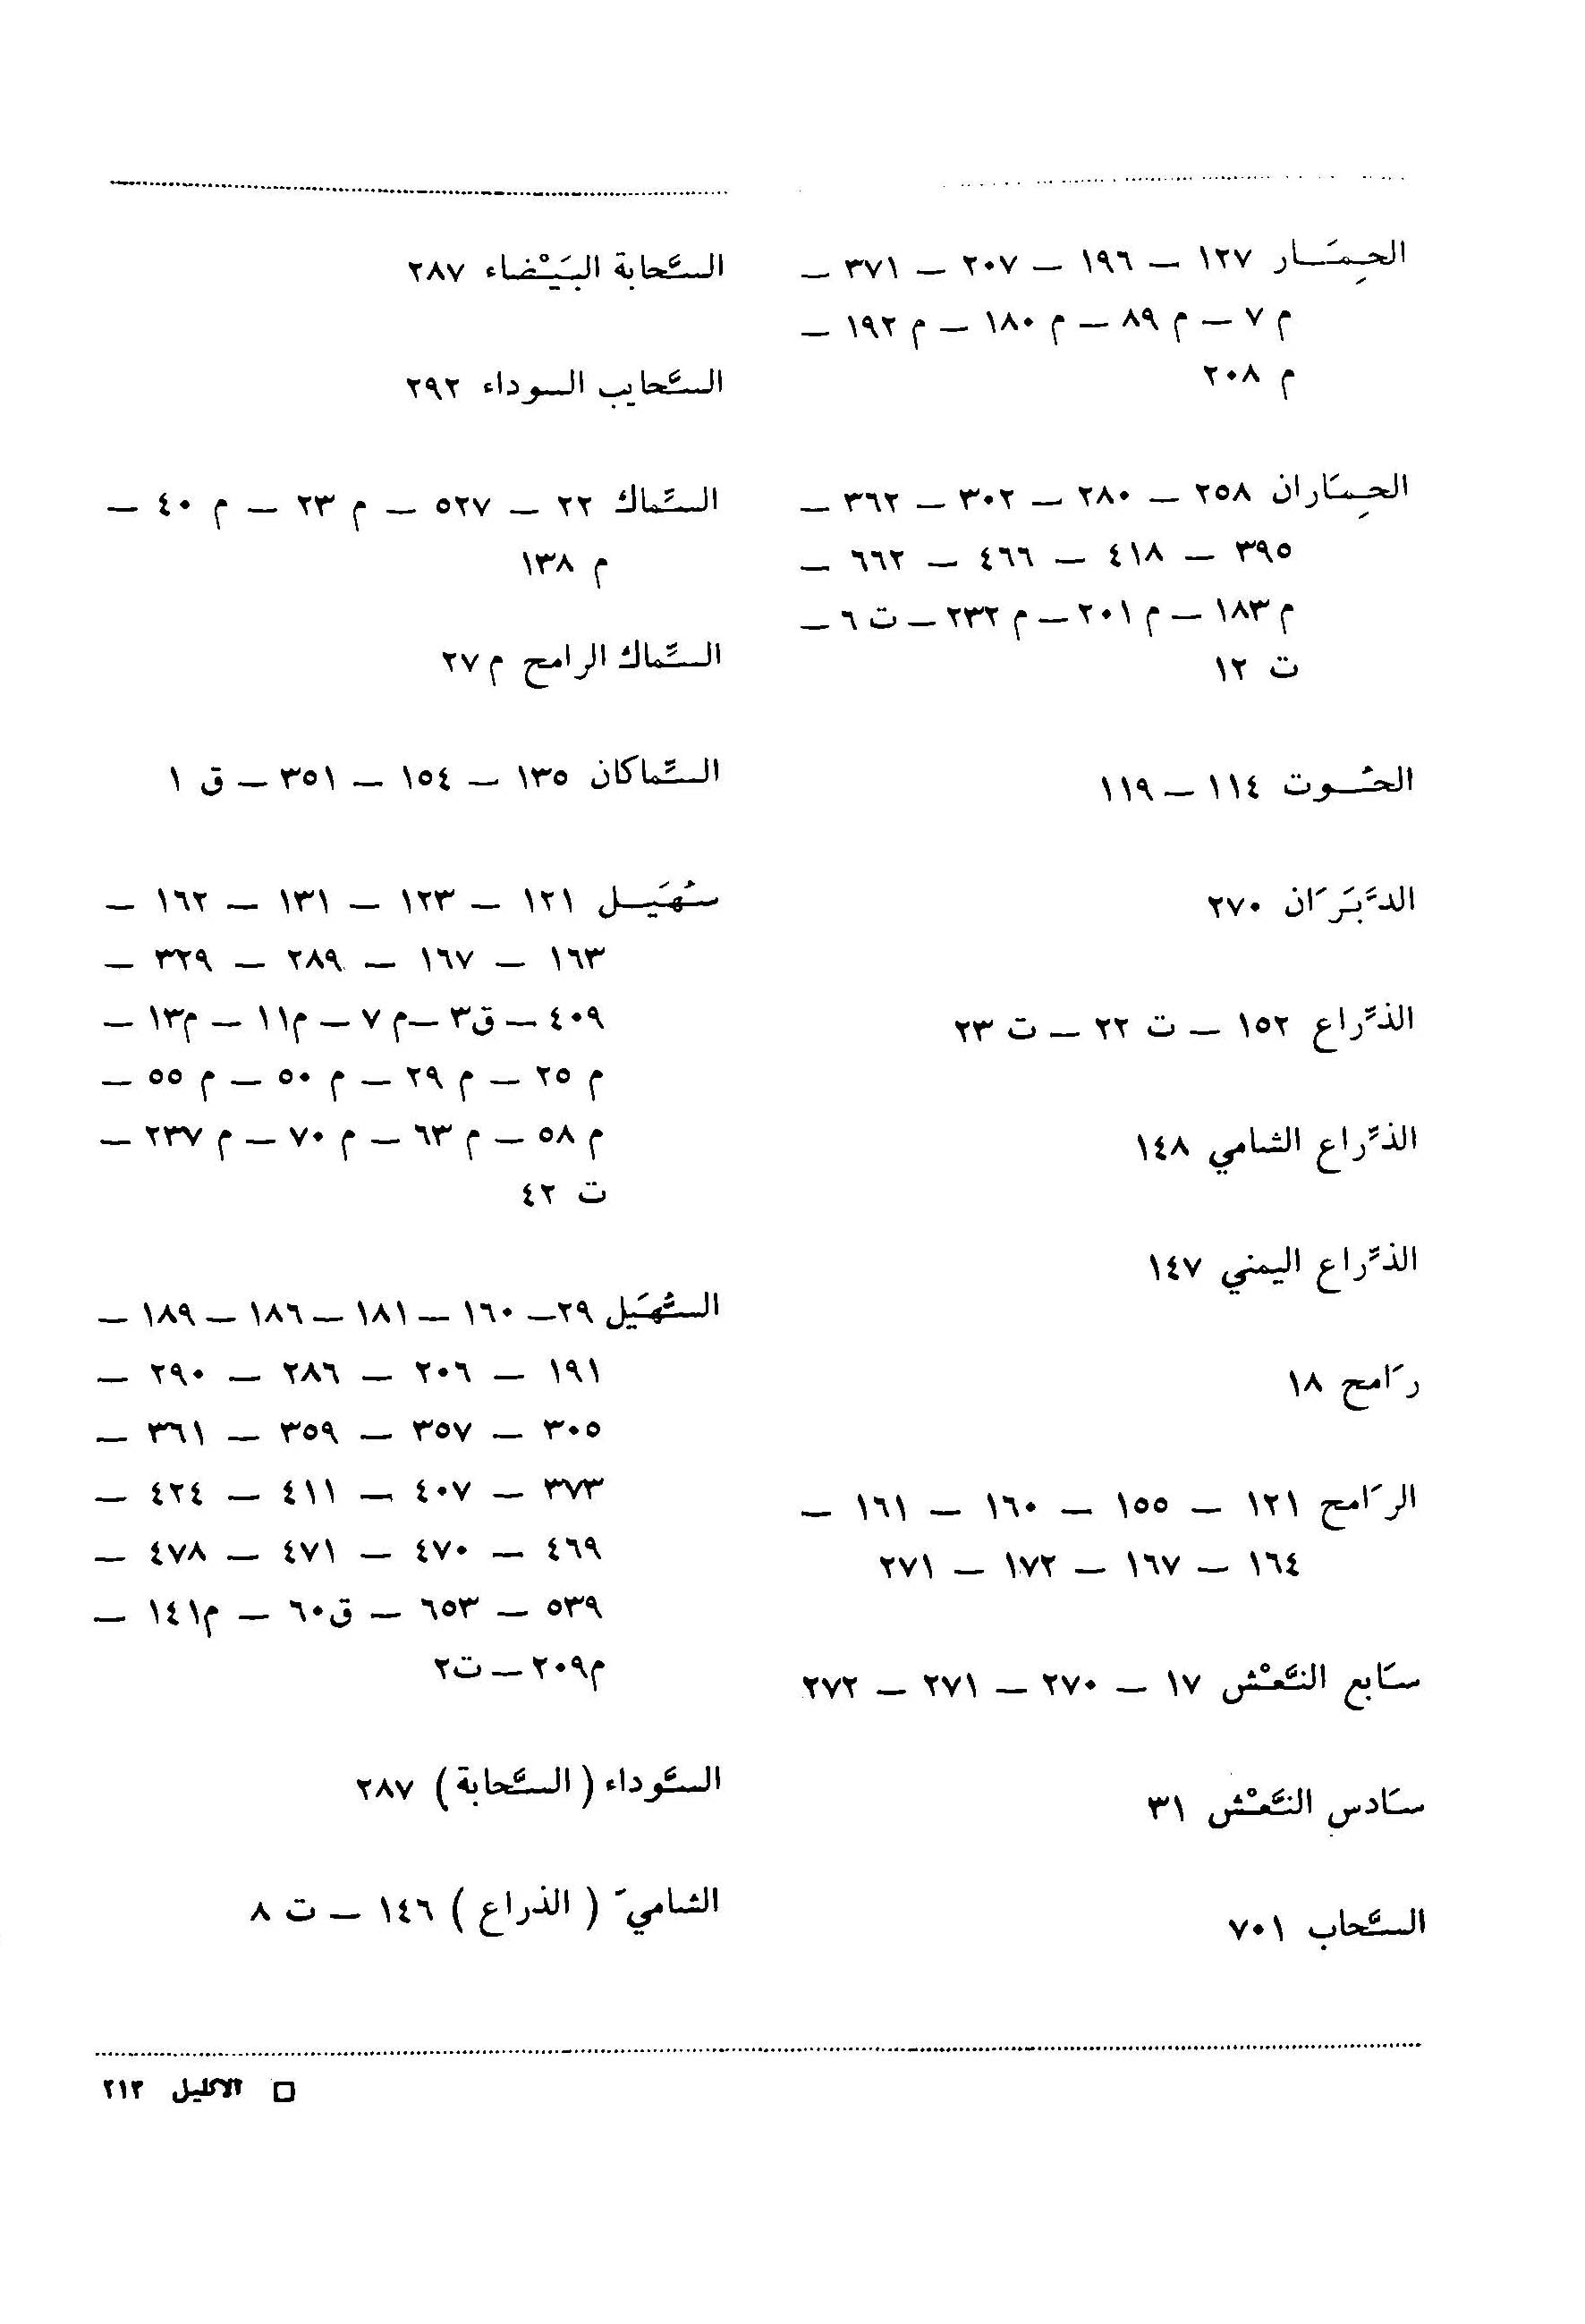 الحِمَار ١٢٧ – ١٩٦ – ٢٠٧ – ٣٧١ –
م ٧ – م ٨٩ – م ١٨٠ – م ١٩٢ –
م ٢٠٨
الحِمَاران ٢٥٨ – ٢٨٠ – ٣٠٢ – ٣٦٢ –
٣٩٥ – ٤١٨ – ٤٦٦ – ٦٦٢ –
م ١٨٣ – م ٢٠١ – م ٢٣٢ – ت ٦ –
ت ١٢
الحُوت ١١٤ – ١١٩
الدَّبَرَان ٢٧٠
الذِّراع ١٥٢ – ت ٢٢ – ت ٢٣
الذِّراع الشامي ١٤٨
الذِّراع اليمني ١٤٧
رَامح ١٨
الرَامح ١٢١ – ١٥٥ – ١٦٠ – ١٦١ –
١٦٤ – ١٦٧ – ١٧٢ – ٢٧١
سَابع النَّعْش ١٧ – ٢٧٠ – ٢٧١ – ٢٧٢
سَادس النَّعْش ٣١
السَّحاب ٧٠١
السَّحابة البَيْضاء ٢٨٧
السَّحايب السوداء ٢٩٢
السِّماك ٢٢ – ٥٢٧ – م ٢٣ – م ٤٠ –
م ١٣٨
السِّماك الرامح م ٢٧
السِّماكان ١٣٥ – ١٥٤ – ٣٥١ – ق ١
سُهَيل ١٢١ – ١٢٣ – ١٣١ – ١٦٢ –
١٦٣ – ١٦٧ – ٢٨٩ – ٣٢٩ –
٤٠٩ – ق٣ –م ٧ – م١١ – م١٣ –
م ٢٥ – م ٢٩ – م ٥٠ – م ٥٥ –
م ٥٨ – م ٦٣ – م ٧٠ – م ٢٣٧ –
ت ٤٢
السُّهَيل ٢٩– ١٦٠ – ١٨١ – ١٨٦ – ١٨٩ –
١٩١ – ٢٠٦ – ٢٨٦ – ٢٩٠ –
٣٠٥ – ٣٥٧ – ٣٥٩ – ٣٦١ –
٣٧٣ – ٤٠٧ – ٤١١ – ٤٢٤ –
٤٦٩ – ٤٧٠ – ٤٧١ – ٤٧٨ –
٥٣٩ – ٦٥٣ – ق٦٠ – م١٤١ –
م٢٠٩ – ت٢
السَّوداء (السَّحابة) ٢٨٧
الشاميَ (الذراع) ١٤٦ – ت ٨
□ الاكليل ٢١٣